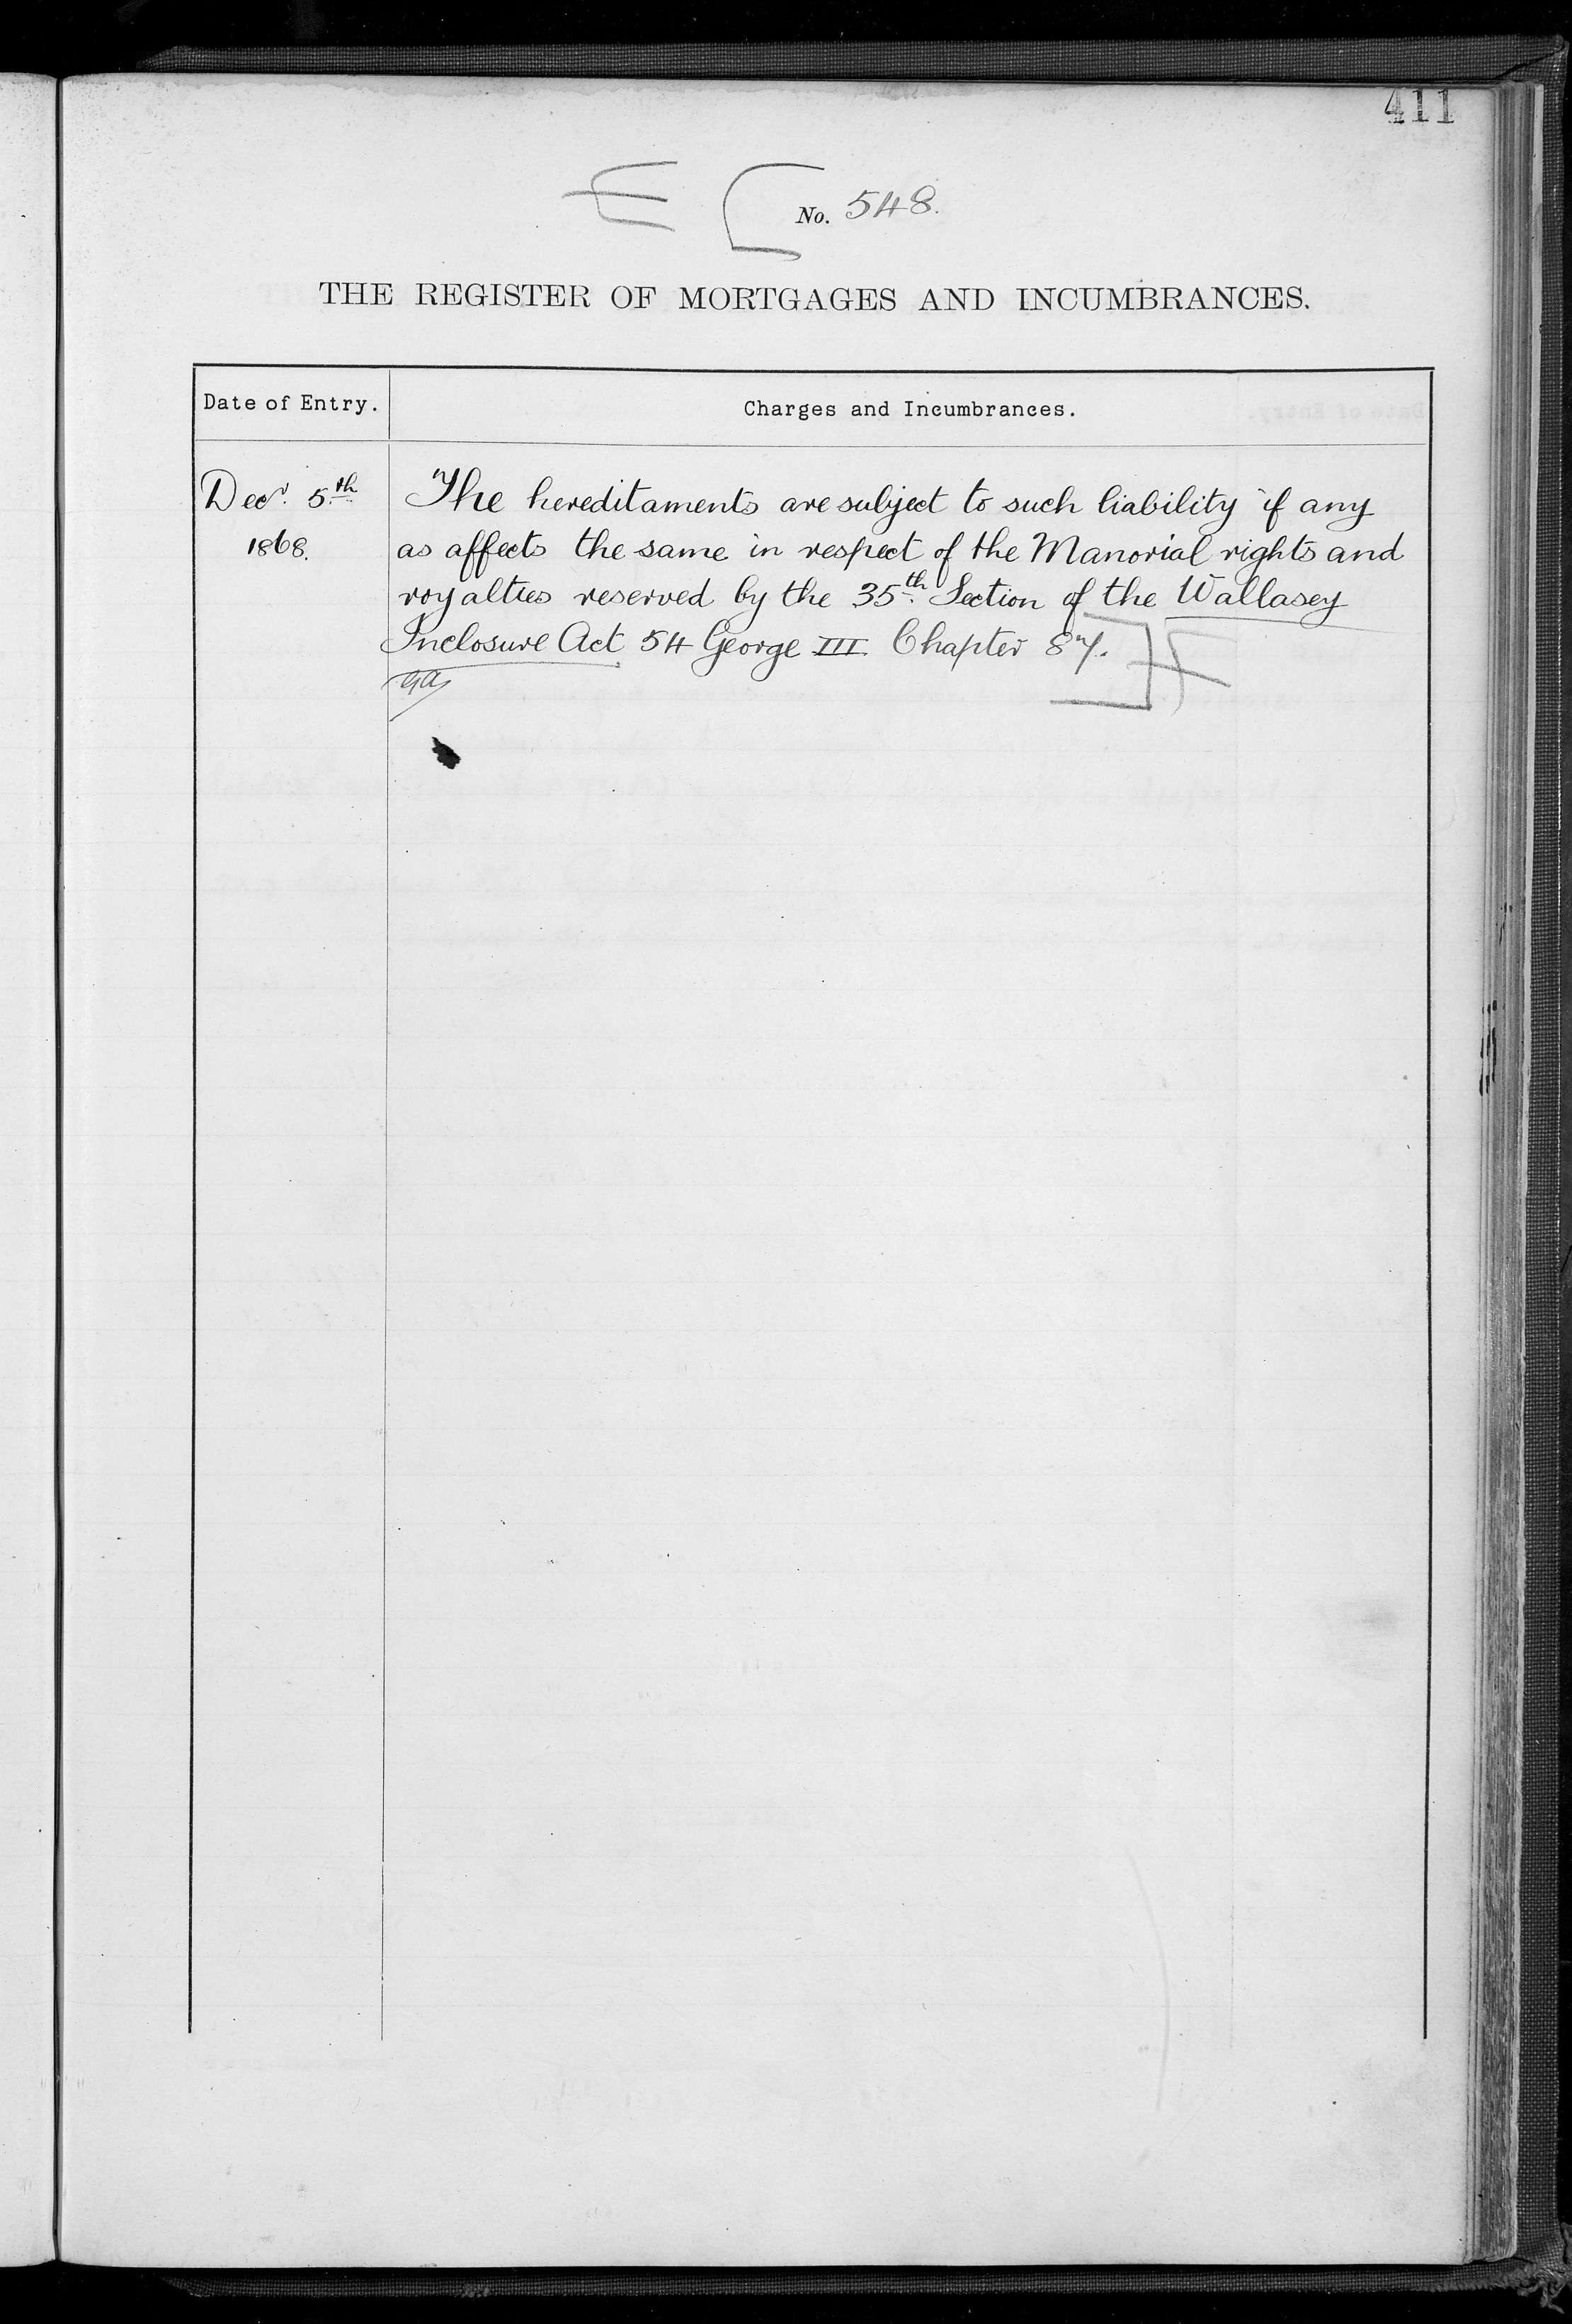 411
No. 548.
THE REGISTER OF MORTGAGES AND INCUMBRANCES.
Date of Entry.
Charges and Incumbrances.
Decr. 5th
1868.
The hereditaments are subject to such liability if any
as affects the same in respect of the Manorial rights and
royalties reserved by the 35th Section of the Wallasey
Inclosure Act 54 George III Chapter 87.